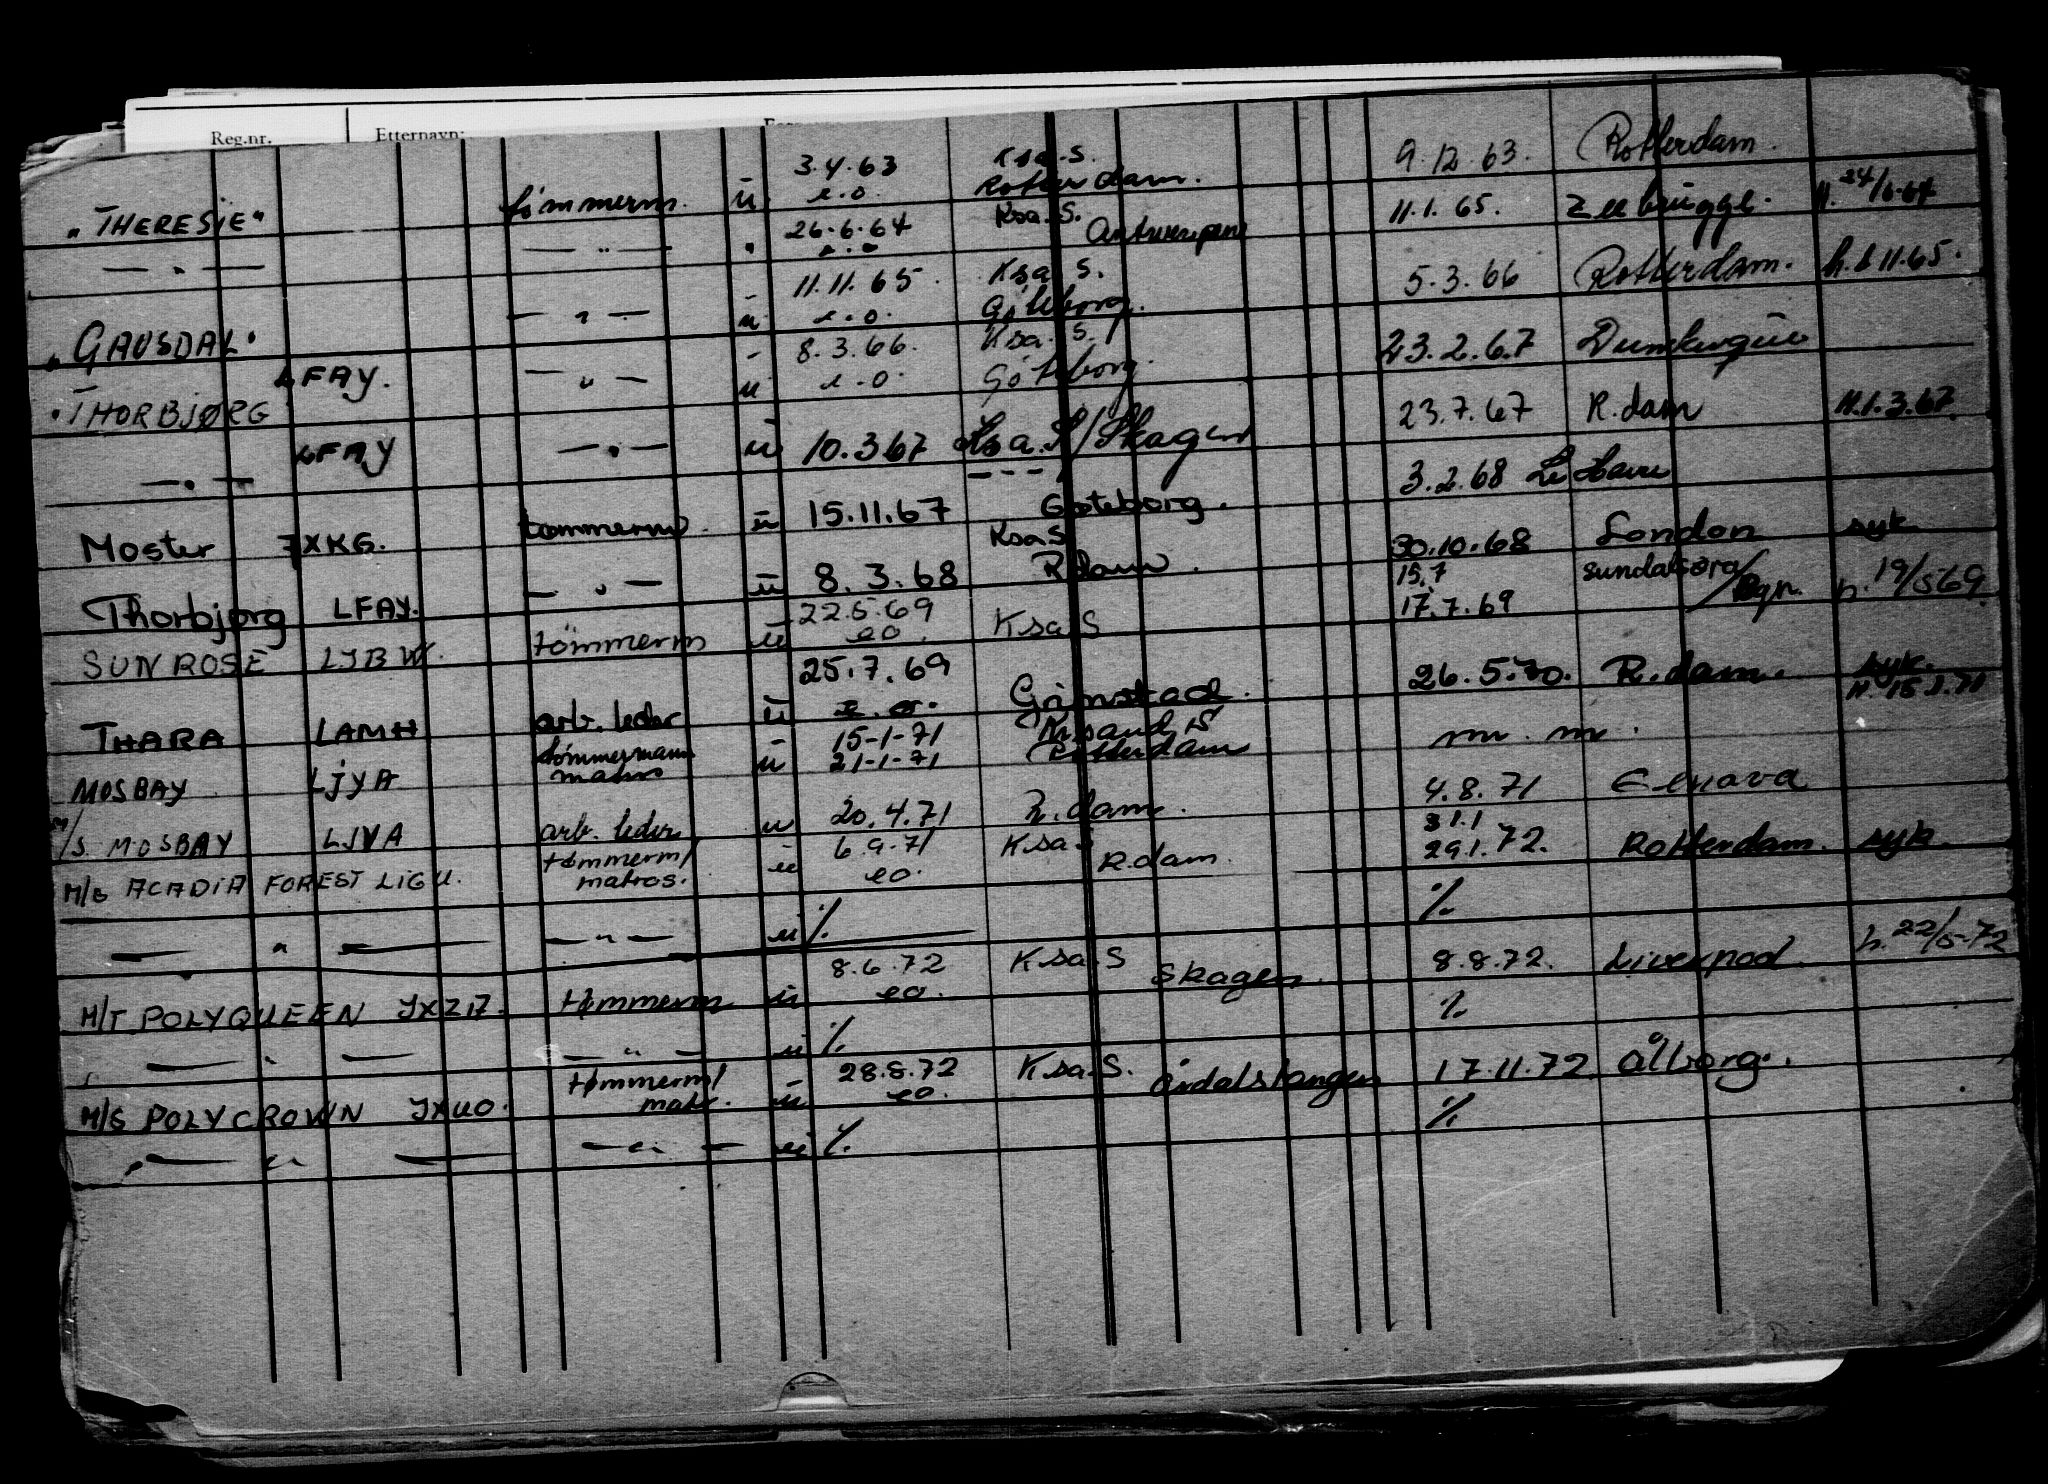 Reg.nr. Etternavn:
3.4.63 Ksa.S. 9.12.63. Rotterdam.
"THERESIE" tömmerm. ü e.o. Rotterdam.
26.6.64 Ksa.S. 11.1.65. Zeebrügge. h. 24/6-64
— " — — " — e.o. Antwerpen
11.11.65. Ksa.S. 5.3.66 Rotterdam. h. 8.11.65.
"GAUSDAL" — " — ü e.o. Göteborg.
8.3.66. Ksa.S. 23.2.67
"THORBJØRG LFAY. — " — ü e.o. Göteborg.
— " — LFAY — " — ü 10.3.67 Ksa.S/Skagen 23.7.67 R.dam H.1.3.67.
Moster JXKG. tömmerm. ü 15.11.67 Goteborg. 3.2.68 Le Havre
Ksa.S
Thorbjørg LFAY. — " — ü 8.3.68 R.dam. 30.10.68 London syk
22.5.69 15.7 sundalsøra/
SUNROSE LJBW. tömmerm ü eo. Ksa.S 17.7.69 Bgn. h. 19/5 69
25.7.69
THARA LAMH arb. leder ü e.o. Grimstad. 26.5.70. R.dam. syk.
tömmermann 15-1-71 Krsand S H. 15.1.71
MOSBAY LJYA matros ü 21-1-71 Rotterdam m. m.
M/S. MOSBAY LJYA arb. leder ü 20.4.71 R.dam. 4.8.71
tømmerm/ 6.9.71 Ksa.S 31.1
M/S ACADIA FOREST LIGU. matros. ü eo. R.dam. 29.1.72. Rotterdam. syk.
— " — — " — ü %. %.
8.6.72 Ksa.S Skagen. 8.8.72. Liverpool. h. 22/5-72
M/T POLYQUEEN JXZD. tømmerm ü eo.
— " — — " — ü %. %.
tømmerm/ 28.8.72 Ksa.S. årdalstangen 17.11.72 Ålborg.
M/S POLYCROWN JXUO. matr. ü eo.
— " — — " — ü %. %.